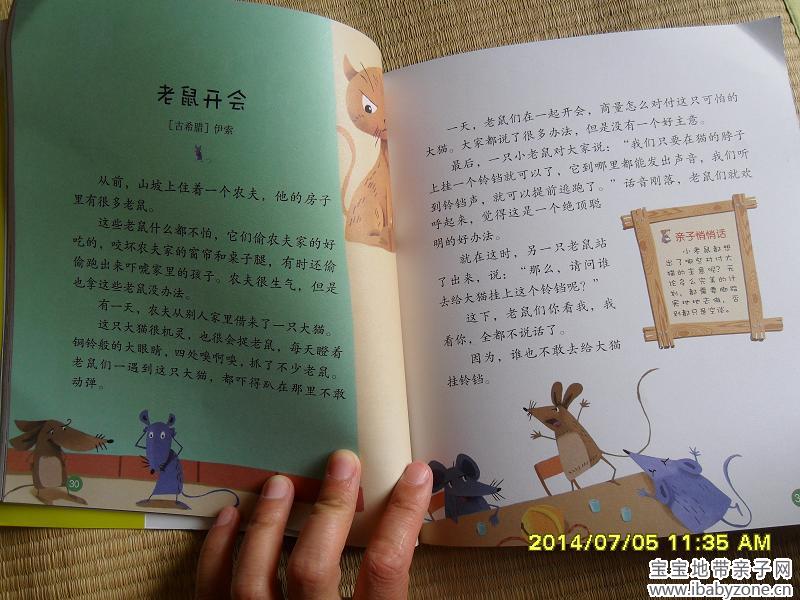 老鼠开会
[古希腊] 伊索
从前，山坡上住着一个农夫，他的房子
里有很多老鼠。
这些老鼠什么都不怕，它们偷农夫家的好
吃的，咬坏农夫家的窗帘和桌子腿，有时还偷
偷跑出来吓唬家里的孩子。农夫很生气，但是
也拿这些老鼠没办法。
有一天，农夫从别人家里借来了一只大猫。
这只大猫很机灵，也很会捉老鼠，每天瞪着
铜铃般的大眼睛，四处嗅啊嗅，抓了不少老鼠。
老鼠们一遇到这只大猫，都吓得趴在那里不敢
动弹。
30
一天，老鼠们在一起开会，商量怎么对付这只可怕的
大猫。大家都说了很多办法，但是没有一个好主意。
最后，一只小老鼠对大家说：“我们只要在猫的脖子
上挂一个铃铛就可以了，它到哪里都能发出声音，我们听
到铃铛声，就可以提前逃跑了。”话音刚落，老鼠们就欢
呼起来，觉得这是一个绝顶聪
明的好办法。
就在这时，另一只老鼠站
了出来，说：“那么，请问谁
去给大猫挂上这个铃铛呢？”
这下，老鼠们你看我，我
看你，全都不说话了。
因为，谁也不敢去给大猫
挂铃铛。
亲子悄悄话
小老鼠都想
出了哪些对付大
猫的主意呢？无
论多么完美的计
划，都需要脚踏
实地地去做，否
则都只是空谈。
2014/07/05 11:35 AM
宝宝地带亲子网
www.ibabyzone.cn